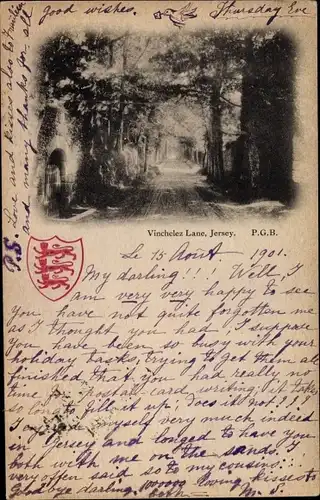 Thursday Eve
good wishes.
P.S. Love and kisses also to
and many thanks for all
Vinchelez Lane, Jersey. P.G.B.
Le 15 Août 1901.
My darling!!! Well, I
am very very happy to see
you have not quite forgotten me
as I thought you had. I suppose
you have been so busy with your
holiday tasks, trying to get them all
finished, that you had really no
time for postal-card writing; it takes
so long to fill it up; does it not!!!
I myself very much indeed
in Jersey and longed to have you
both with me on the sands. I
very often said so to my cousins.
Goodbye darling loving kisses to
both